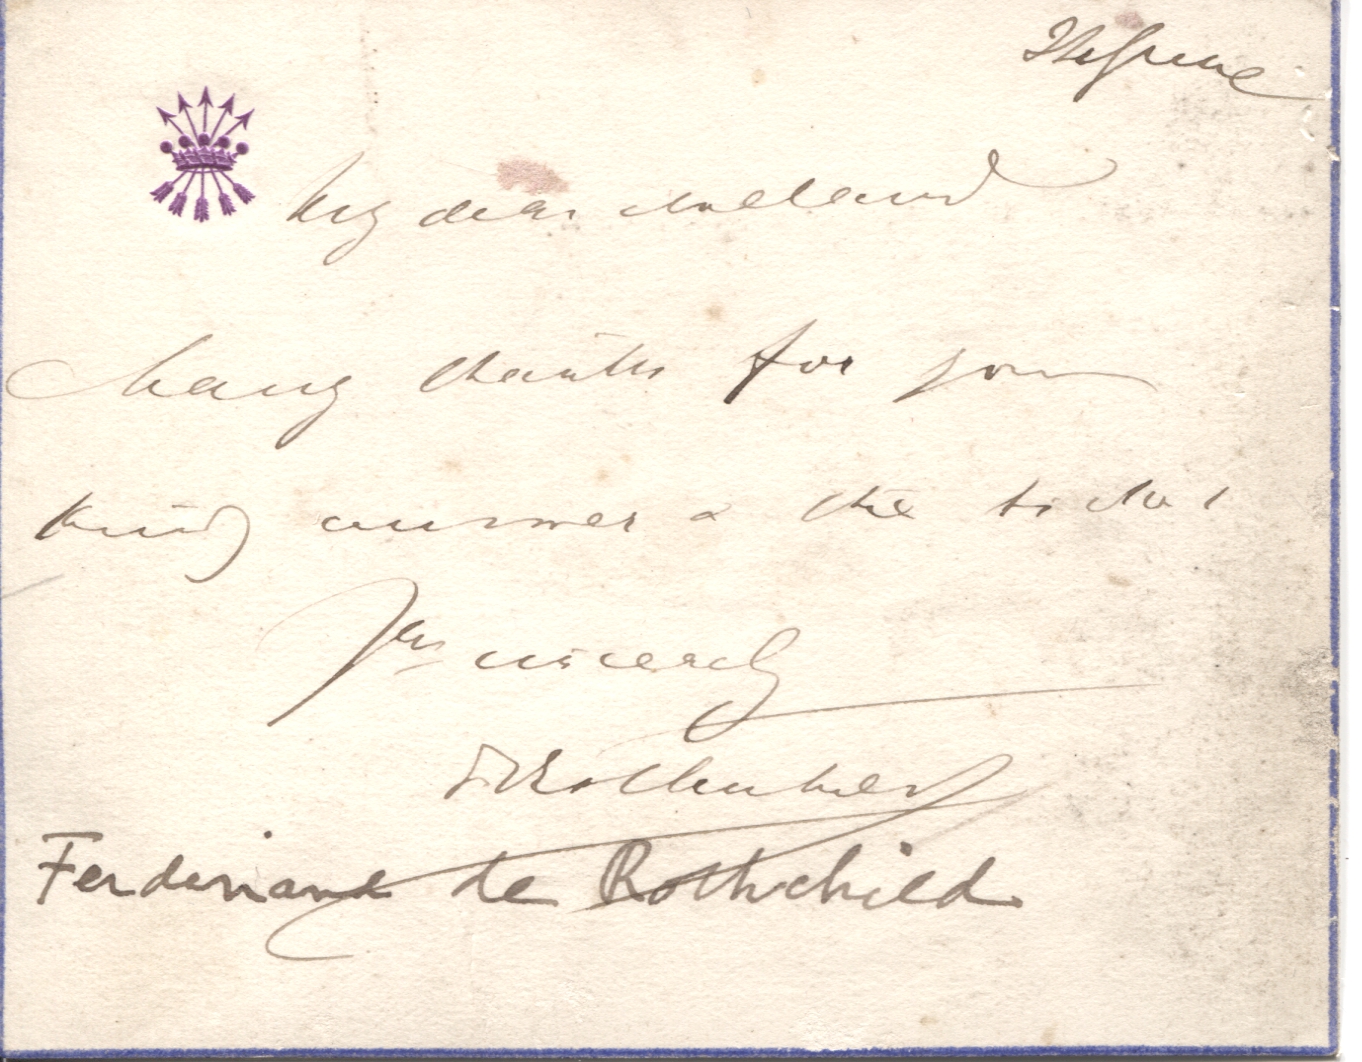 27 June
My dear Holland
Many thanks for your
kind answer & the ticket
Yrs sincerely
FRothschild
Ferdinand de Rothschild